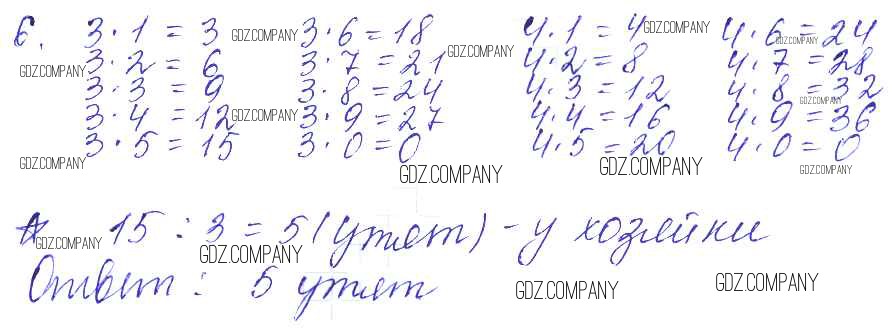 6. 3·1=3 GDZ.COMPANY 3·6=18 4·1=4 GDZ.COMPANY 4·6=24 GDZ.COMPANY
GDZ.COMPANY 3·2=6 3·7=21 GDZ.COMPANY 4·2=8 4·7=28
3·3=9 3·8=24 4·3=12 4·8=32 GDZ.COMPANY
3·4=12 GDZ.COMPANY 3·9=27 4·4=16 4·9=36
GDZ.COMPANY 3·5=15 3·0=0 GDZ.COMPANY 4·5=20 GDZ.COMPANY 4·0=0 GDZ.COMPANY
* GDZ.COMPANY 15:3=5 (утят) - у хозяйки GDZ.COMPANY
Ответ: 5 утят GDZ.COMPANY GDZ.COMPANY